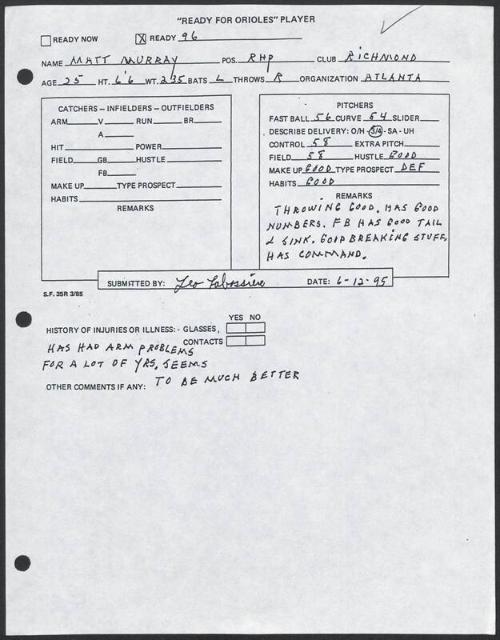 "READY FOR ORIOLES" PLAYER
READY NOW X READY 96
NAME MATT MURRAY POS. RHP CLUB RICHMOND
AGE 25 HT. 6'6 WT. 235 BATS L THROWS R ORGANIZATION ATLANTA
CATCHERS – INFIELDERS – OUTFIELDERS
ARM V RUN BR
A
HIT POWER
FIELD GB HUSTLE
FB
MAKE UP TYPE PROSPECT
HABITS
REMARKS
PITCHERS
FAST BALL 56 CURVE 54 SLIDER
DESCRIBE DELIVERY: O/H - 3/4 - SA - UH
CONTROL 58 EXTRA PITCH
FIELD 58 HUSTLE GOOD
MAKE UP GOOD TYPE PROSPECT DEF
HABITS GOOD
REMARKS
THROWING GOOD. HAS GOOD
NUMBERS. FB HAS GOOD TAIL
& SINK. GOOD BREAKING STUFF,
HAS COMMAND.
SUBMITTED BY: Leo Labossiere DATE: 6-12-95
S.F. 35R 3/85
YES NO
HISTORY OF INJURIES OR ILLNESS: - GLASSES,
CONTACTS
HAS HAD ARM PROBLEMS
FOR A LOT OF YRS. SEEMS
OTHER COMMENTS IF ANY: TO BE MUCH BETTER